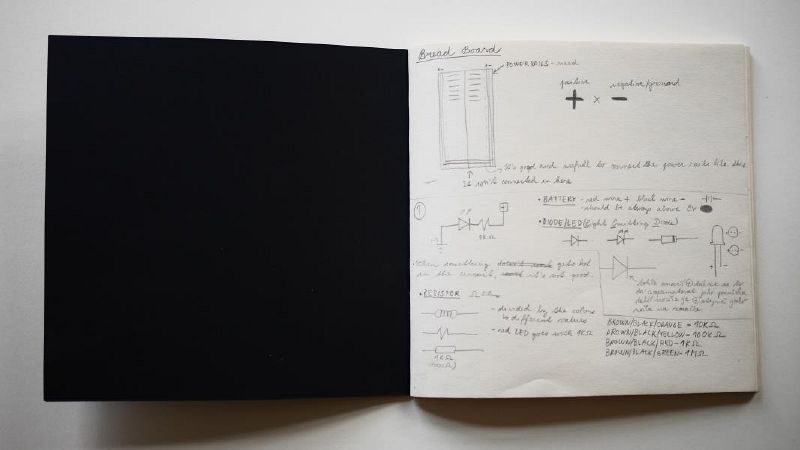 Bread Board
POWER RAILS - need
positive negative/ground
+ x -
It's good and usefull to connect the power rails like this
It isn't connected in here
1
• BATTERY - red wire + black wire -
- should be always above 0v
• DIODE/LED (Light Emitting Diode)
+
1KΩ
• When something doesn't work gets hot
in the circuit, it's not good.
• RESISTOR Ω Ohm
- divided by the colors
to different values
- red LED goes with 1KΩ
1KΩ
BROWN/BLACK/ORANGE = 10KΩ
BROWN/BLACK/YELLOW - 100KΩ
BROWN/BLACK/RED - 1KΩ
BROWN/BLACK/GREEN - 1MΩ